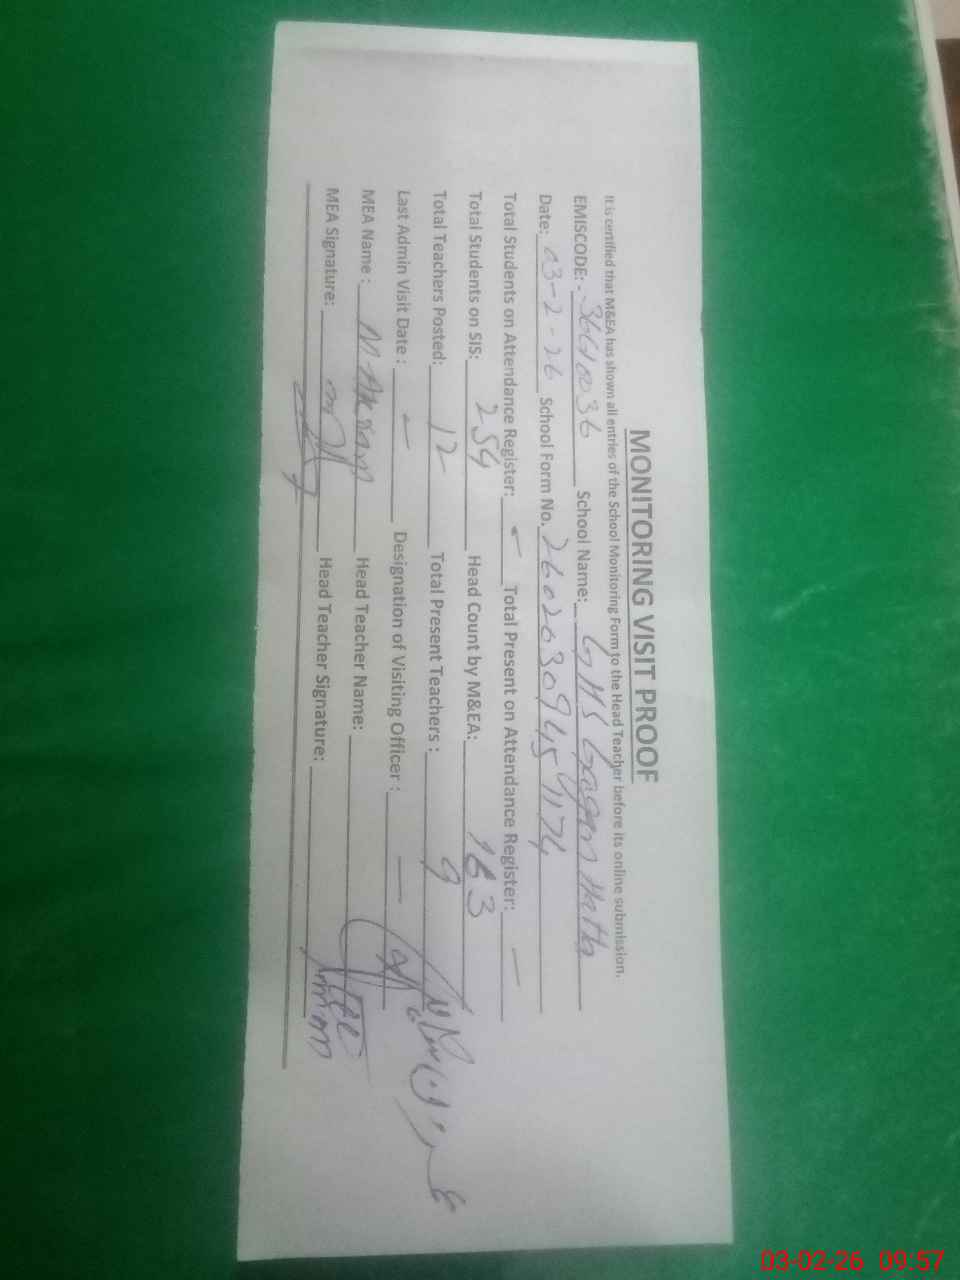 MONITORING VISIT PROOF
It is certified that M&EA has shown all entries of the School Monitoring Form to the Head Teacher before its online submission.
EMISCODE: 36610036 School Name: GHS
Date: 03-2-26 School Form No. 260203094549174
Total Students on Attendance Register: - Total Present on Attendance Register: -
Total Students on SIS: 254 Head Count by M&EA: 163
Total Teachers Posted: 12 Total Present Teachers: 9
Last Admin Visit Date: - Designation of Visiting Officer: -
MEA Name: M Akram Head Teacher Name:
MEA Signature: Head Teacher Signature:
03-02-26 09:57